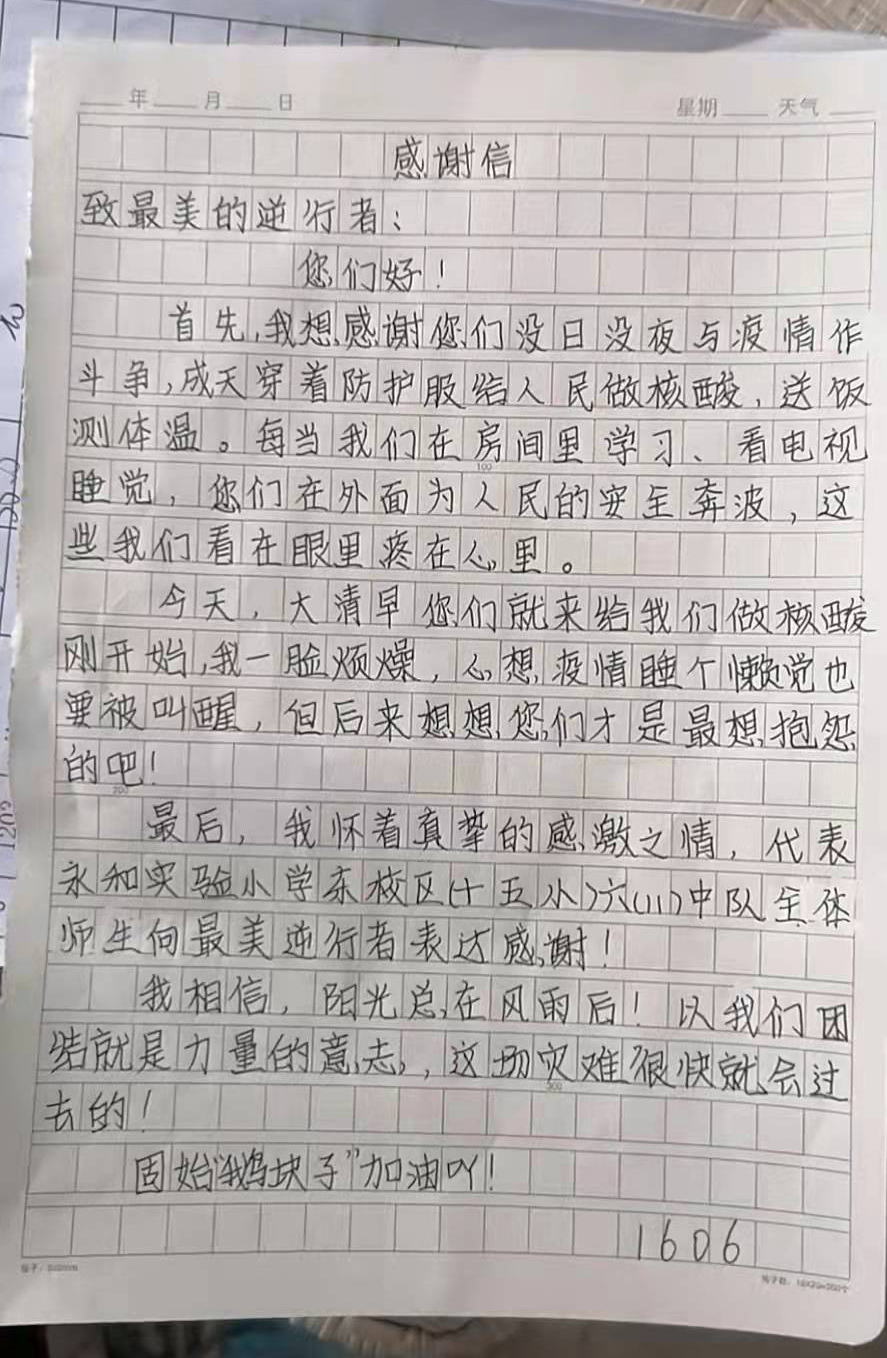 年 月 日 星期 天气
感谢信
致最美的逆行者：
您们好！
首先，我想感谢您们没日没夜与疫情作
斗争，成天穿着防护服给人民做核酸，送饭
测体温。每当我们在房间里学习、看电视
100
睡觉，您们在外面为人民的安全奔波，这
些我们看在眼里疼在心里。
今天，大清早您们就来给我们做核酸
刚开始，我一脸烦燥，心想疫情睡个懒觉也
要被叫醒，但后来想想，您们才是最想抱怨
的吧！
200
最后，我怀着真挚的感激之情，代表
永和实验小学东校区（十五小）六（11）中队全体
师生向最美逆行者表达感谢！
我相信，阳光总在风雨后！以我们团
结就是力量的意志，这场灾难很快就会过
300
去的！
固始“鹅块子”加油吖！
1606